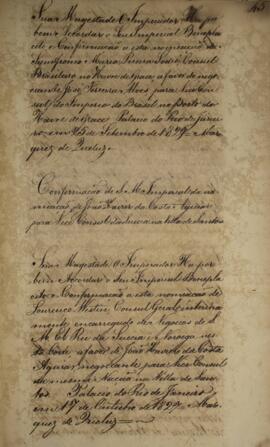 Sua Magestade O Imperador Ha por
bem Accordar o Seu Imperial Benepla
cito e Confirmação a esta nomeação de
Consul
Brasileiro no Havre de Grace a favor do nego
ciante José Alves, para Vice Con
sul do Imperio do Brasil no Porto do
Havre de Grace. Palacio do Rio de Janei
ro em 15 de Setembro de 1827. Mar
quez de Queluz.
Confirmação de S. M. Imperial da no
meação de João Xavier da Costa Aguiar
para Vice Consul da Suecia na Villa de Santos
Sua Magestade O Imperador Ha por
bem Accordar o Seu Imperial Benepla
cito e Confirmação a esta nomeação de
Lourenço Westin, Consul Geral e interina
mente encarregado de Negocios de S.
M. El Rei da Suecia e Noruega nes
ta Corte a favor de João Xavier da Costa
Aguiar, negociante, para Vice Consul
da mesma Nação na Villa de San
tos. Palacio do Rio de Janeiro
em 17 de Outubro de 1827. Mar
quez de Queluz